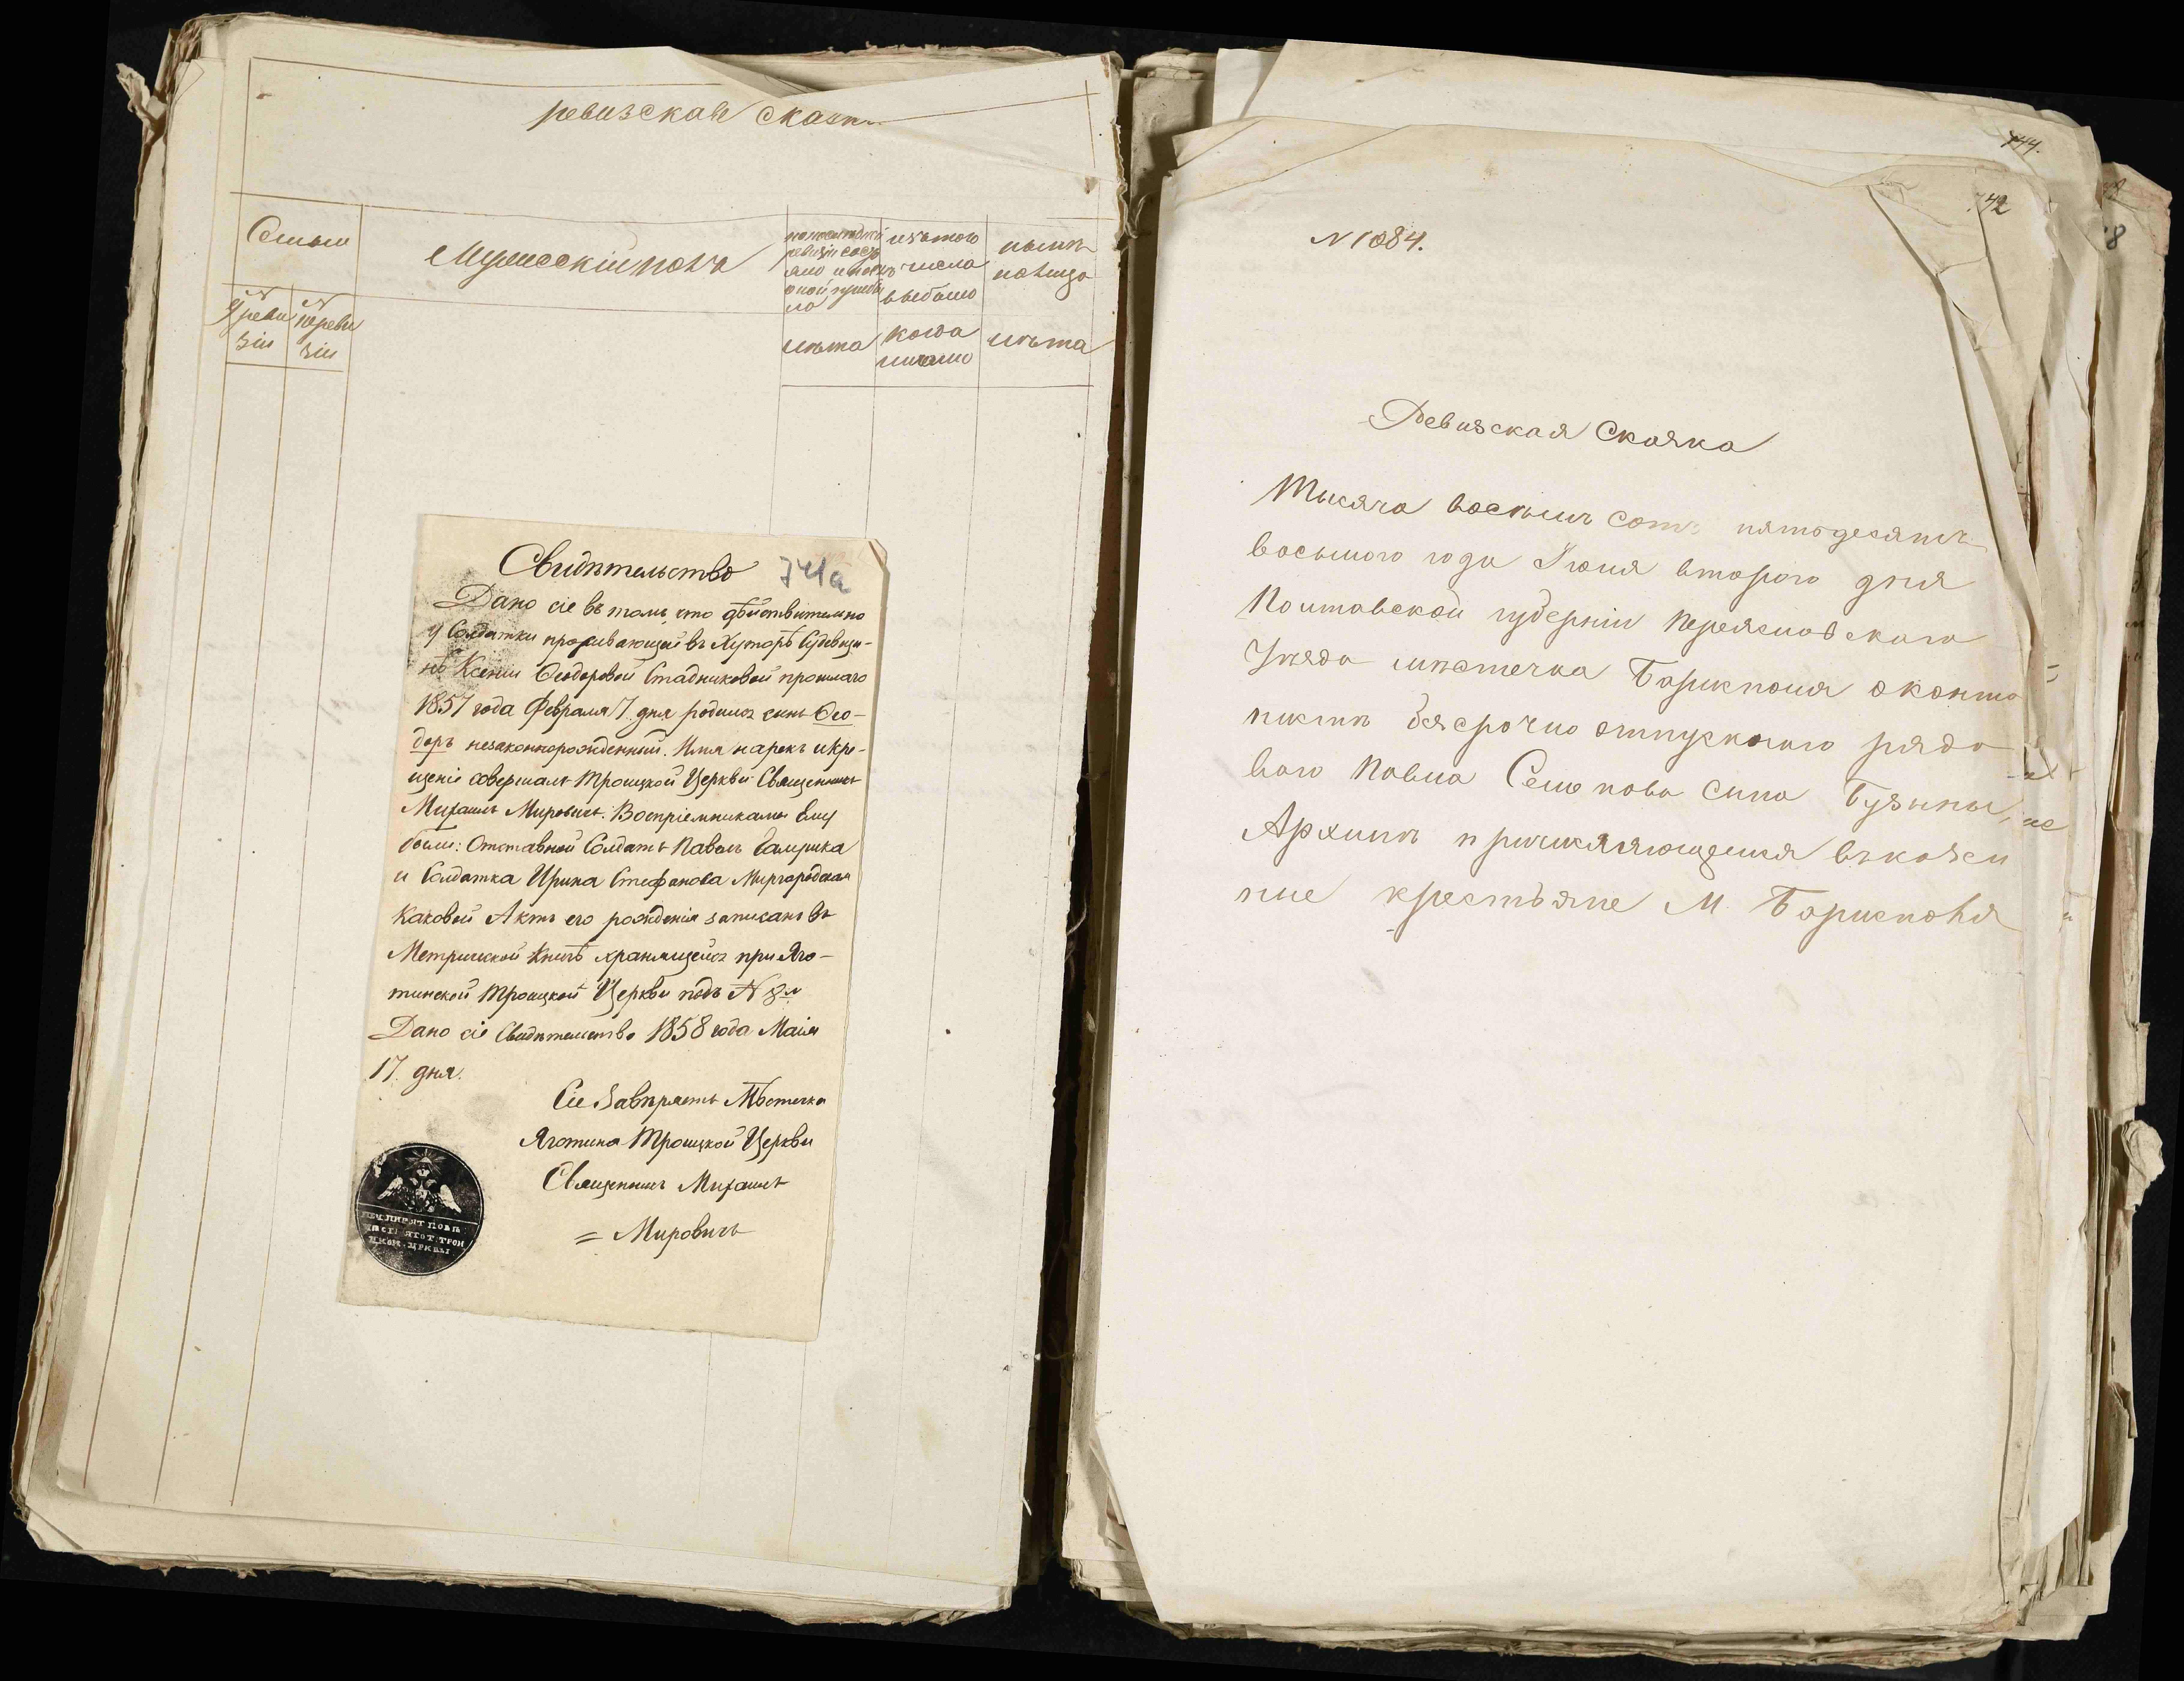 ревизская сказка
Семьи
Мужескій полъ
по последней ревизіи состояло и после оной прибыло
изътого числа выбыло
ныне налицо
№ 9 ревизіи
№ 10 ревизіи
лѣта
когда имянно
лѣта
Свидѣтельство
741а
Дано сіе въ томъ, что дѣйствительно
у Солдатки проживающей въ Хуторѣ
нѣ Ксеніи Ѳеодоровой Стадниковой прошлаго
1857 года Февраля 7 дня родился сынъ Ѳео-
доръ незаконнорожденный. Имя нарекъ и кре-
щеніе совершалъ Троицкой Церкви Священникъ
Михаилъ Мировичъ. Воспріемниками ему
были: Отставной Солдатъ Павелъ Гамрика
и Солдатка Ирина Стефанова Миргородская
Каковой Актъ его рожденія записанъ въ
Метрической Книгѣ хранящейся при Яго-
тинской Троицкой Церкви подъ № 8м
Дано сіе Свидѣтельство 1858 года Маія
17. дня.
Сіе Завѣряетъ Мѣстечка
Яготина Троицкой Церкви
Священникъ Михаилъ
= Мировичъ
ЯГОТ. ТРОИ
ЦКОИ. ЦРКВЫ
744.
742
8
№ 1084.
Ревизская Сказка
Тысяча восемь сотъ пятьдесятъ
восьмого года Іюня второго дня
Полтавской губерніи Переяславского
Уѣзда мѣстечка Борисполя окантонистѣ
безсрочно отпускного рядо
вого Павла Семенова сына Бузыны,
Архипѣ причисляющемся въ казен
ные крестьяне М. Борисполя